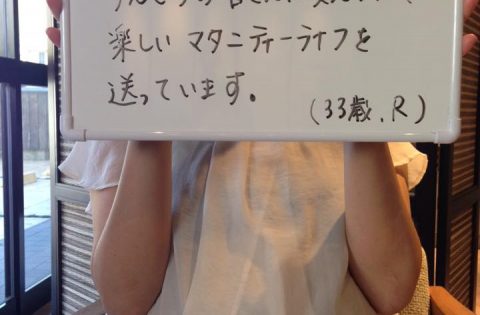 楽しいマタニティーライフを
送っています。
(33歳.R)